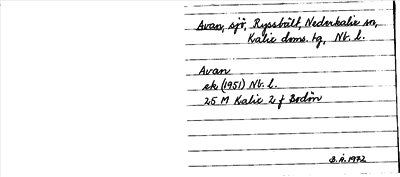 Avan, sjö, Ryssbält, Nederkalix sn,
Kalix doms. tg, Nb. l.
Avan
ek (1951) Nb. l.
25 M Kalix 2 f Boden
B.Å. 1972